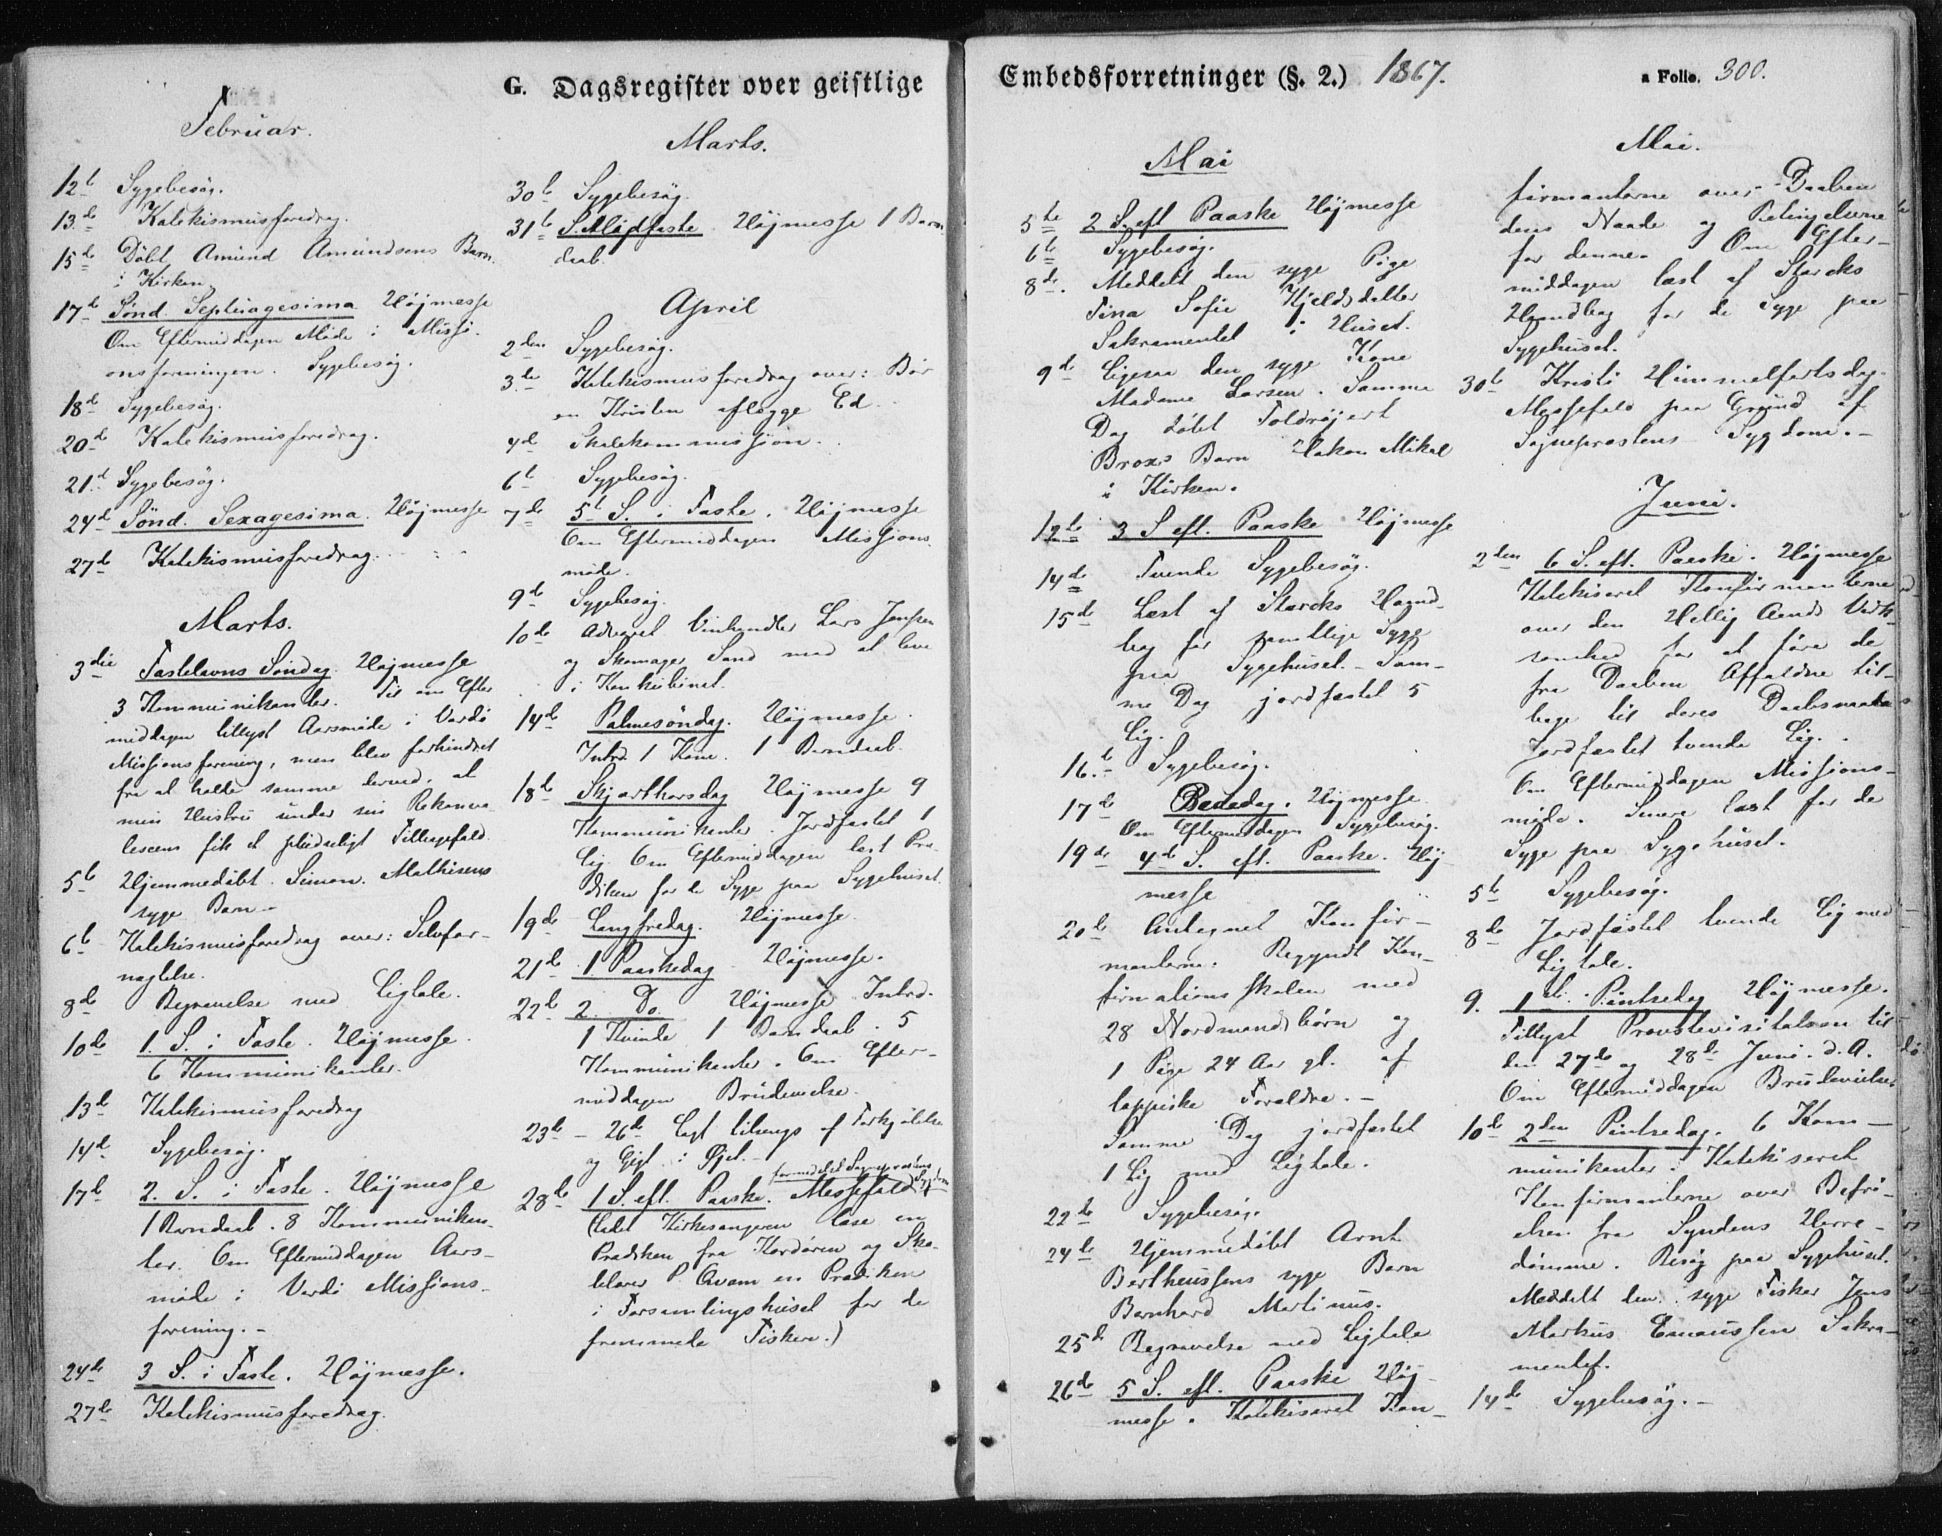 G. Dagsregister over geistlige
Februar.
12te Sygebesøg.
13de Katekismusforedrag.
15de Döbt Amund Amundsens Barn
i Kirken
17de Sönd. Septuagesima Höjmesse
Om Eftermiddagen Möde i Missi-
onsforeningen. Sygebesøg.
18de Sygebesøg.
20de Katekismusforedrag.
21de Sygebesög.
24de Sönd. Sexagesima. Höjmesse
27de Katekismusforedrag.
Marts.
3die Fastelavns Söndag. Höjmesse
3 Kommunikanter. Til om Efter
middagen tillyst Aarsmöde i Vardö
Missionsforening, men blev forhindret
fra at holde samme derved, at
min Hustru under sin Rekonva
lescens fik et pludseligt Tilbagefald.
5te Hjemmedöbt Simon Mathisens
syge Barn -
6te Katekismusforedrag over: Selvfor-
nægtelse.
8de Begravelse med Ligtale.
10de 1. S. i Faste. Höjmesse.
6 Kommunikanter.
13de Katekismusforedrag
14de Sygebesøg.
17de 2. S. i Faste. Höjmesse
1 Barndaab. 8 Kommunikan-
ter. Om Eftermiddagen Aars-
möde i Vardö Missions-
forening. -
24de 3 S. i Faste. Höjmesse.
27de Katekismusforedrag.
Marts.
30te Sygebesög.
31te S. Midfaste. Höjmesse 1 Barn
daab.
April
2den Sygebesøg.
3die Katekismusforedrag over: Bör
en Kristen aflægge Ed.
4de Skolekommission.
6te Sygebesøg.
7de 5te S. i Faste. Höjmesse
Om Eftermiddagen Missions-
möde.
9de Sygebesøg.
10de Advaret Vinhandler Lars Jensen
og Skomager Sand mod at leve
i Konkubinat.
14de Palmesöndag. Höjmesse.
Introd. 1 Kone. 1 Barndaab.
18de Skjærthorsdag Höjmesse 9
Kommunikanter. Jordfæstet 1
Lig. Om Eftermiddagen læst Præ-
diken for de Syge paa Sygehuset.
19de Langfredag. Höjmesse.
21de 1 Paaskedag Höjmesse.
22de 2. Do. Höjmesse. Introd.
1 Kvinde 1 Barndaab. 5
Kommunikanter. Om Efter-
middagen Brudevielse.
23de - 26de Lagt tilsengs af Forkjölelse
og Gigt i Öjet. -
28de 1 S. eft. Paaske. Messefald formedelst Sogneprestens Sygdom
(Lod Kirkesangeren læse en
Prædiken fra Kordören og Sko-
lelærer P. Qvam en Prædiken
i Forsamlingshuset for de
fremmede Fiskere.)
Embedsforretninger (§. 2.) 1867. a Folio. 300.
Mai
5te 2 S. eft Paaske Höjmesse
6te Sygebesøg.
8de. Meddelt den syge Pige
Tina Sofie Kjeldsdatter
Sakramentet i Huset.
9de Ligesaa den syge Kone
Madame Larsen. Samme
Dag döbt Toldröjert
Brox's Barn Hakon Mikal
i Kirken.
12te 3 S. eft. Paaske Höjmesse
14de Tvende Sygebesøg.
15de Læst af Starcks Haand-
bog for samtlige Syge
paa Sygehuset. - Sam-
me Dag jordfæstet 5
Lig.
16.te Sygebesøg.
17de Bededag. Höjmesse
Om Eftermiddagen Sygebesøg.
19de 4de S. eft. Paaske. Höj-
messe
20de Antegnet Konfir-
manterne. Begyndt Kon-
firmationsskolen med
28 Nordmandsbörn og
1 Pige 24 Aar gl. af
lappiske Forældre. -
Samme Dag jordfæstet
1 Lig med Ligtale.
22de Sygebesøg.
24de Hjemmedöbt Arnt
Bertheussens syge Barn
Bernhard Martinus.
25de Begravelse med Ligtale
26de 5 S. eft. Paaske Höj-
messe. Katekiseret Kon-
Mai.
firmanterne over Daaben
dens Naade og Betingelserne
for denne. Om Efter-
middagen læst af Starcks
Haandbog for de Syge paa
Sygehuset.
30te Kristi Himmelfartsdag.
Messefald paa Grund af
Sogneprestens Sygdom. -
Juni.
2den 6 S. eft. Paaske. Höjmesse
Katekiseret Konfirmanterne
over den Hellig Aands Virk-
somhed for at före de
fra Daaben Affaldne til-
bage til deres Daabsnaade
Jordfæstet tvende Lig.
Om Eftermiddagen Missions-
möde. Senere læst for de
Syge paa Sygehuset.
5te Sygebesøg.
8de Jordfæstet tvende Lig med
Ligtale.
9. 1ste Pintsedag Höjmesse.
Tillyst Provstevisitatsen til
den 27de og 28de Juni d. A.
Om Eftermiddagen Brudevielse
10de 2den Pintsedag. 6 Kom-
munikanter. Katekiseret
Konfirmanterne over Befri-
elsen fra Syndens Herre-
dömme. Besøg paa Sygehuset.
Meddelt den syge Fisker Jens
Markus Emaussen Sakra-
mentet.
14de Sygebesøg. -